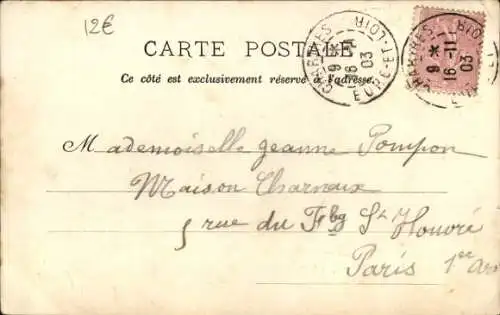 12€
CARTE POSTALE
Ce côté est exclusivement réservé à l'adresse.
CHARTRES EURE-ET-LOIR
9 *
16 -11
03
CHARTRES LOIR
9 *
16 -11
03
Mademoiselle Jeanne Pompon
Maison Charnaux
5 rue du Fbg St Honoré
Paris 1er Arr